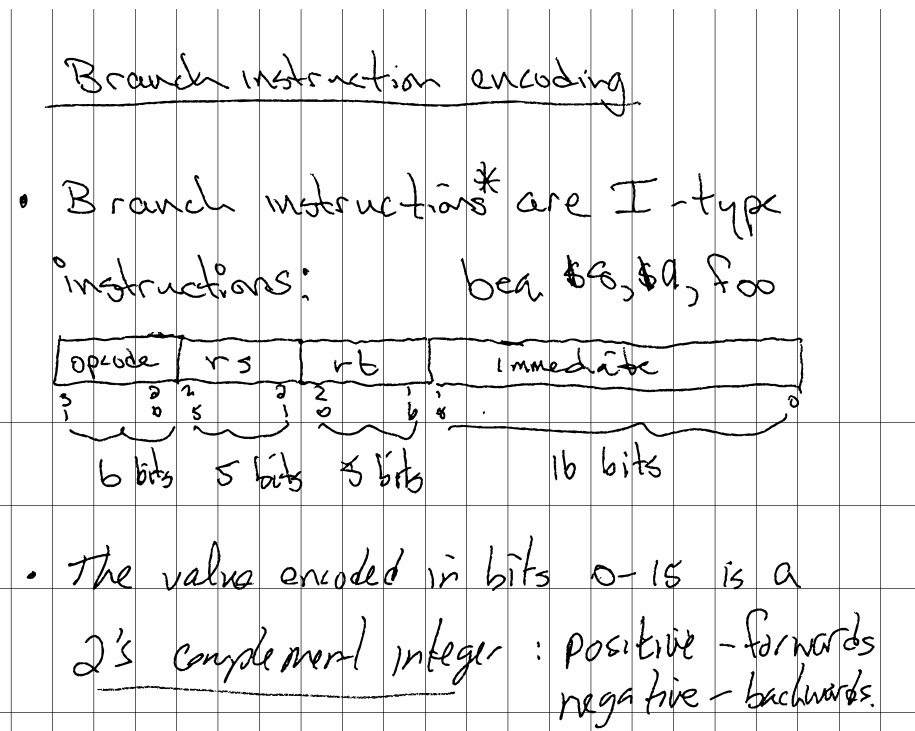 Branch instruction encoding
• Branch instructions* are I-type
instructions: beq $8, $9, foo
opcode rs rt immediate
31 26 25 21 20 16 15 0
6 bits 5 bits 5 bits 16 bits
• The value encoded in bits 0-15 is a
2's complement integer : positive - forwards
negative - backwards.